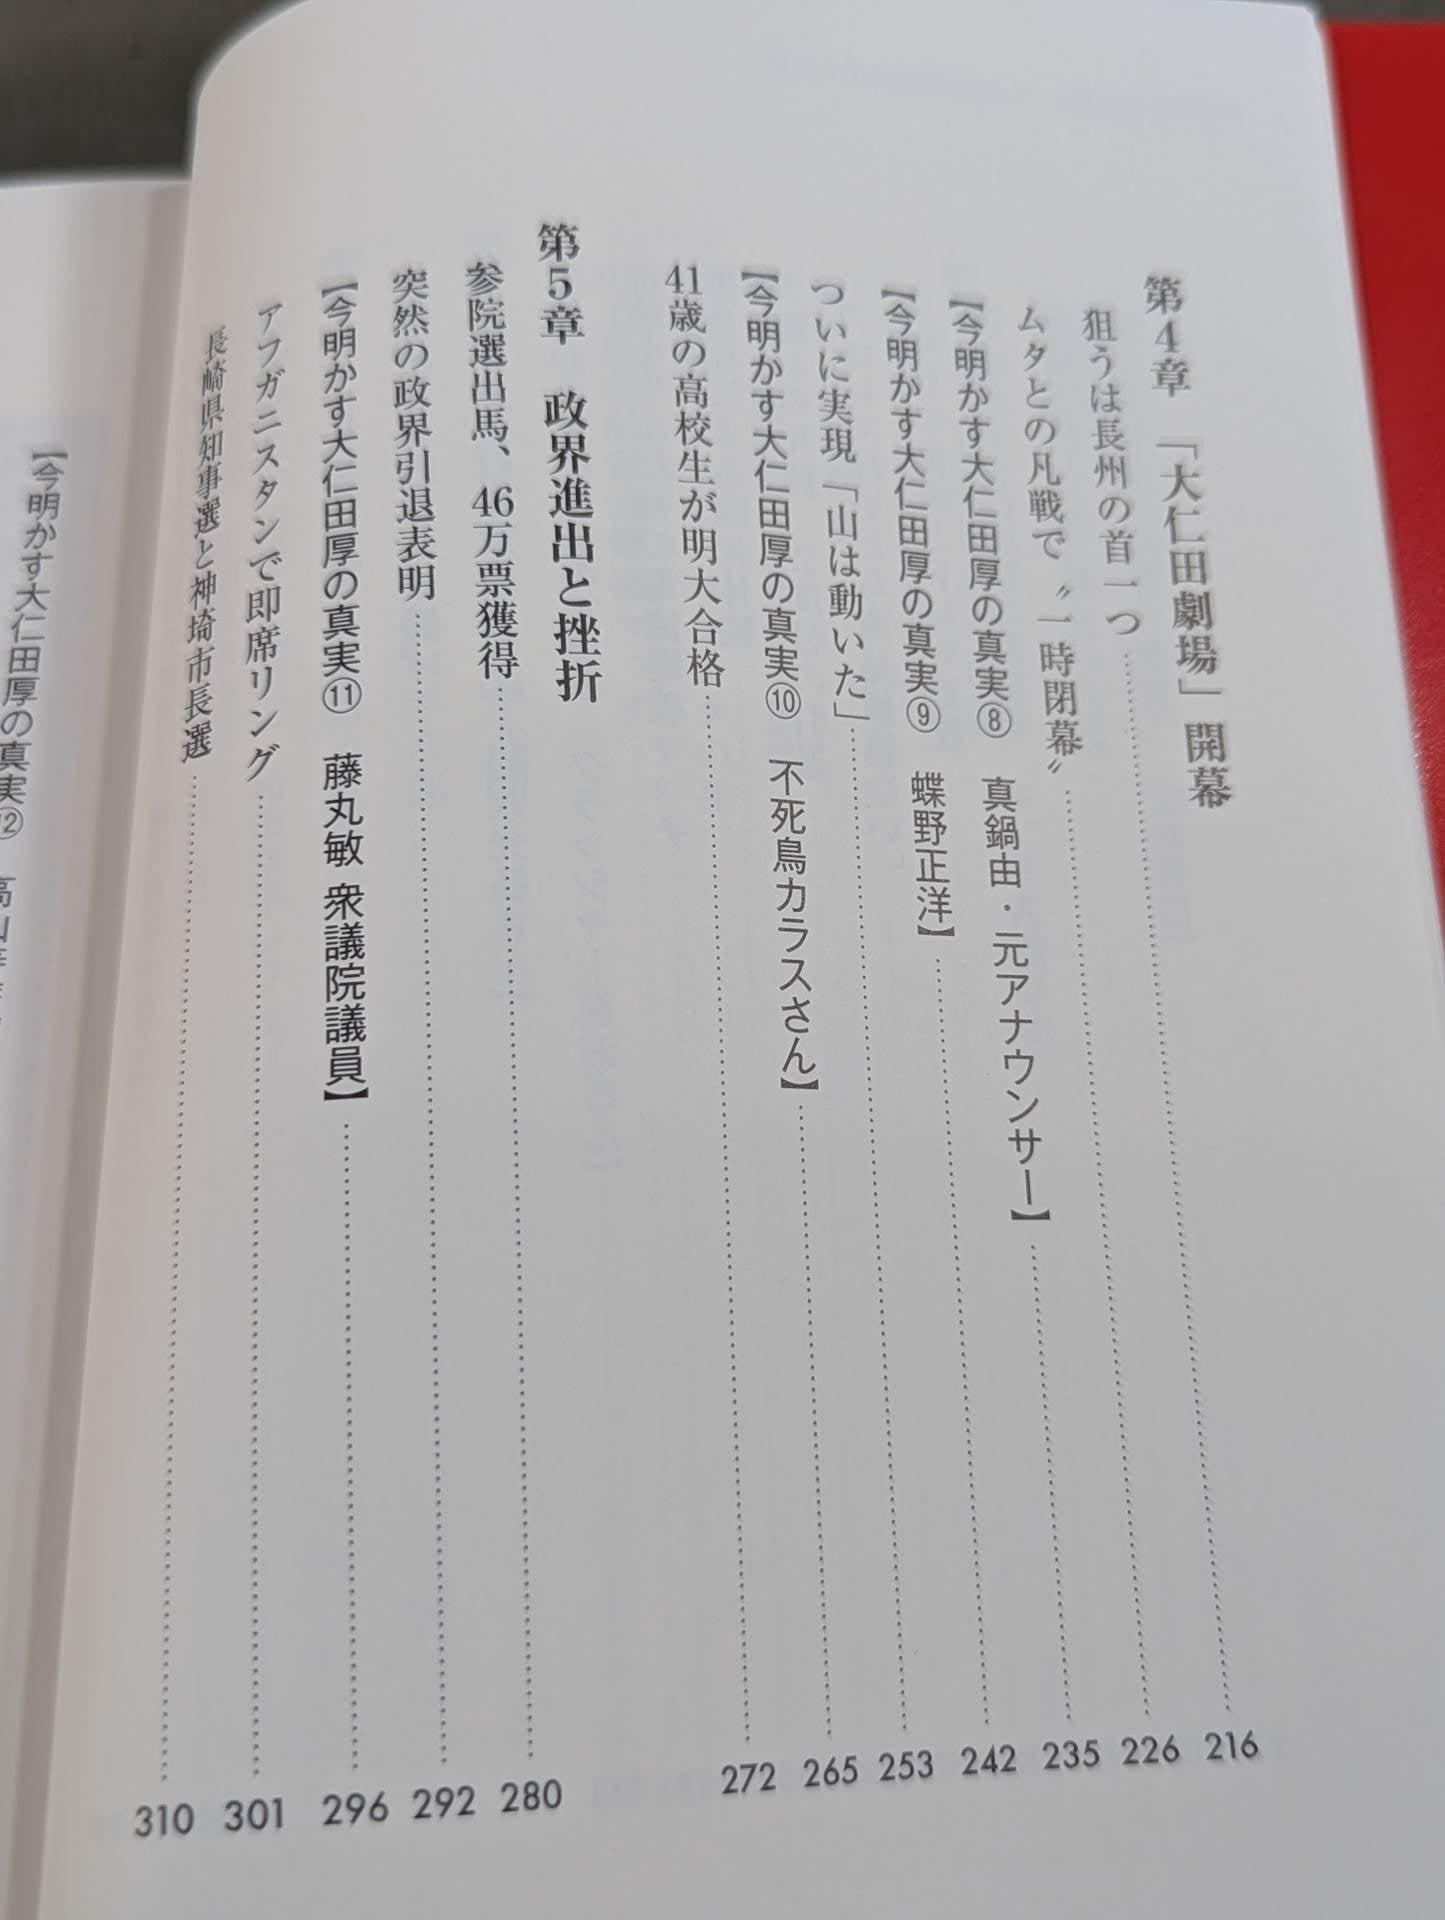 第4章　「大仁田劇場」開幕
狙うは長州の首一つ……216
ムタとの凡戦で〝一時閉幕〟……226
【今明かす大仁田厚の真実⑧　真鍋由・元アナウンサー】……235
【今明かす大仁田厚の真実⑨　蝶野正洋】……242
ついに実現「山は動いた」……253
【今明かす大仁田厚の真実⑩　不死鳥カラスさん】……265
41歳の高校生が明大合格……272
第5章　政界進出と挫折
参院選出馬、46万票獲得……280
突然の政界引退表明……292
【今明かす大仁田厚の真実⑪　藤丸敏 衆議院議員】……296
アフガニスタンで即席リング……301
長崎県知事選と神埼市長選……310
【今明かす大仁田厚の真実⑫　高山